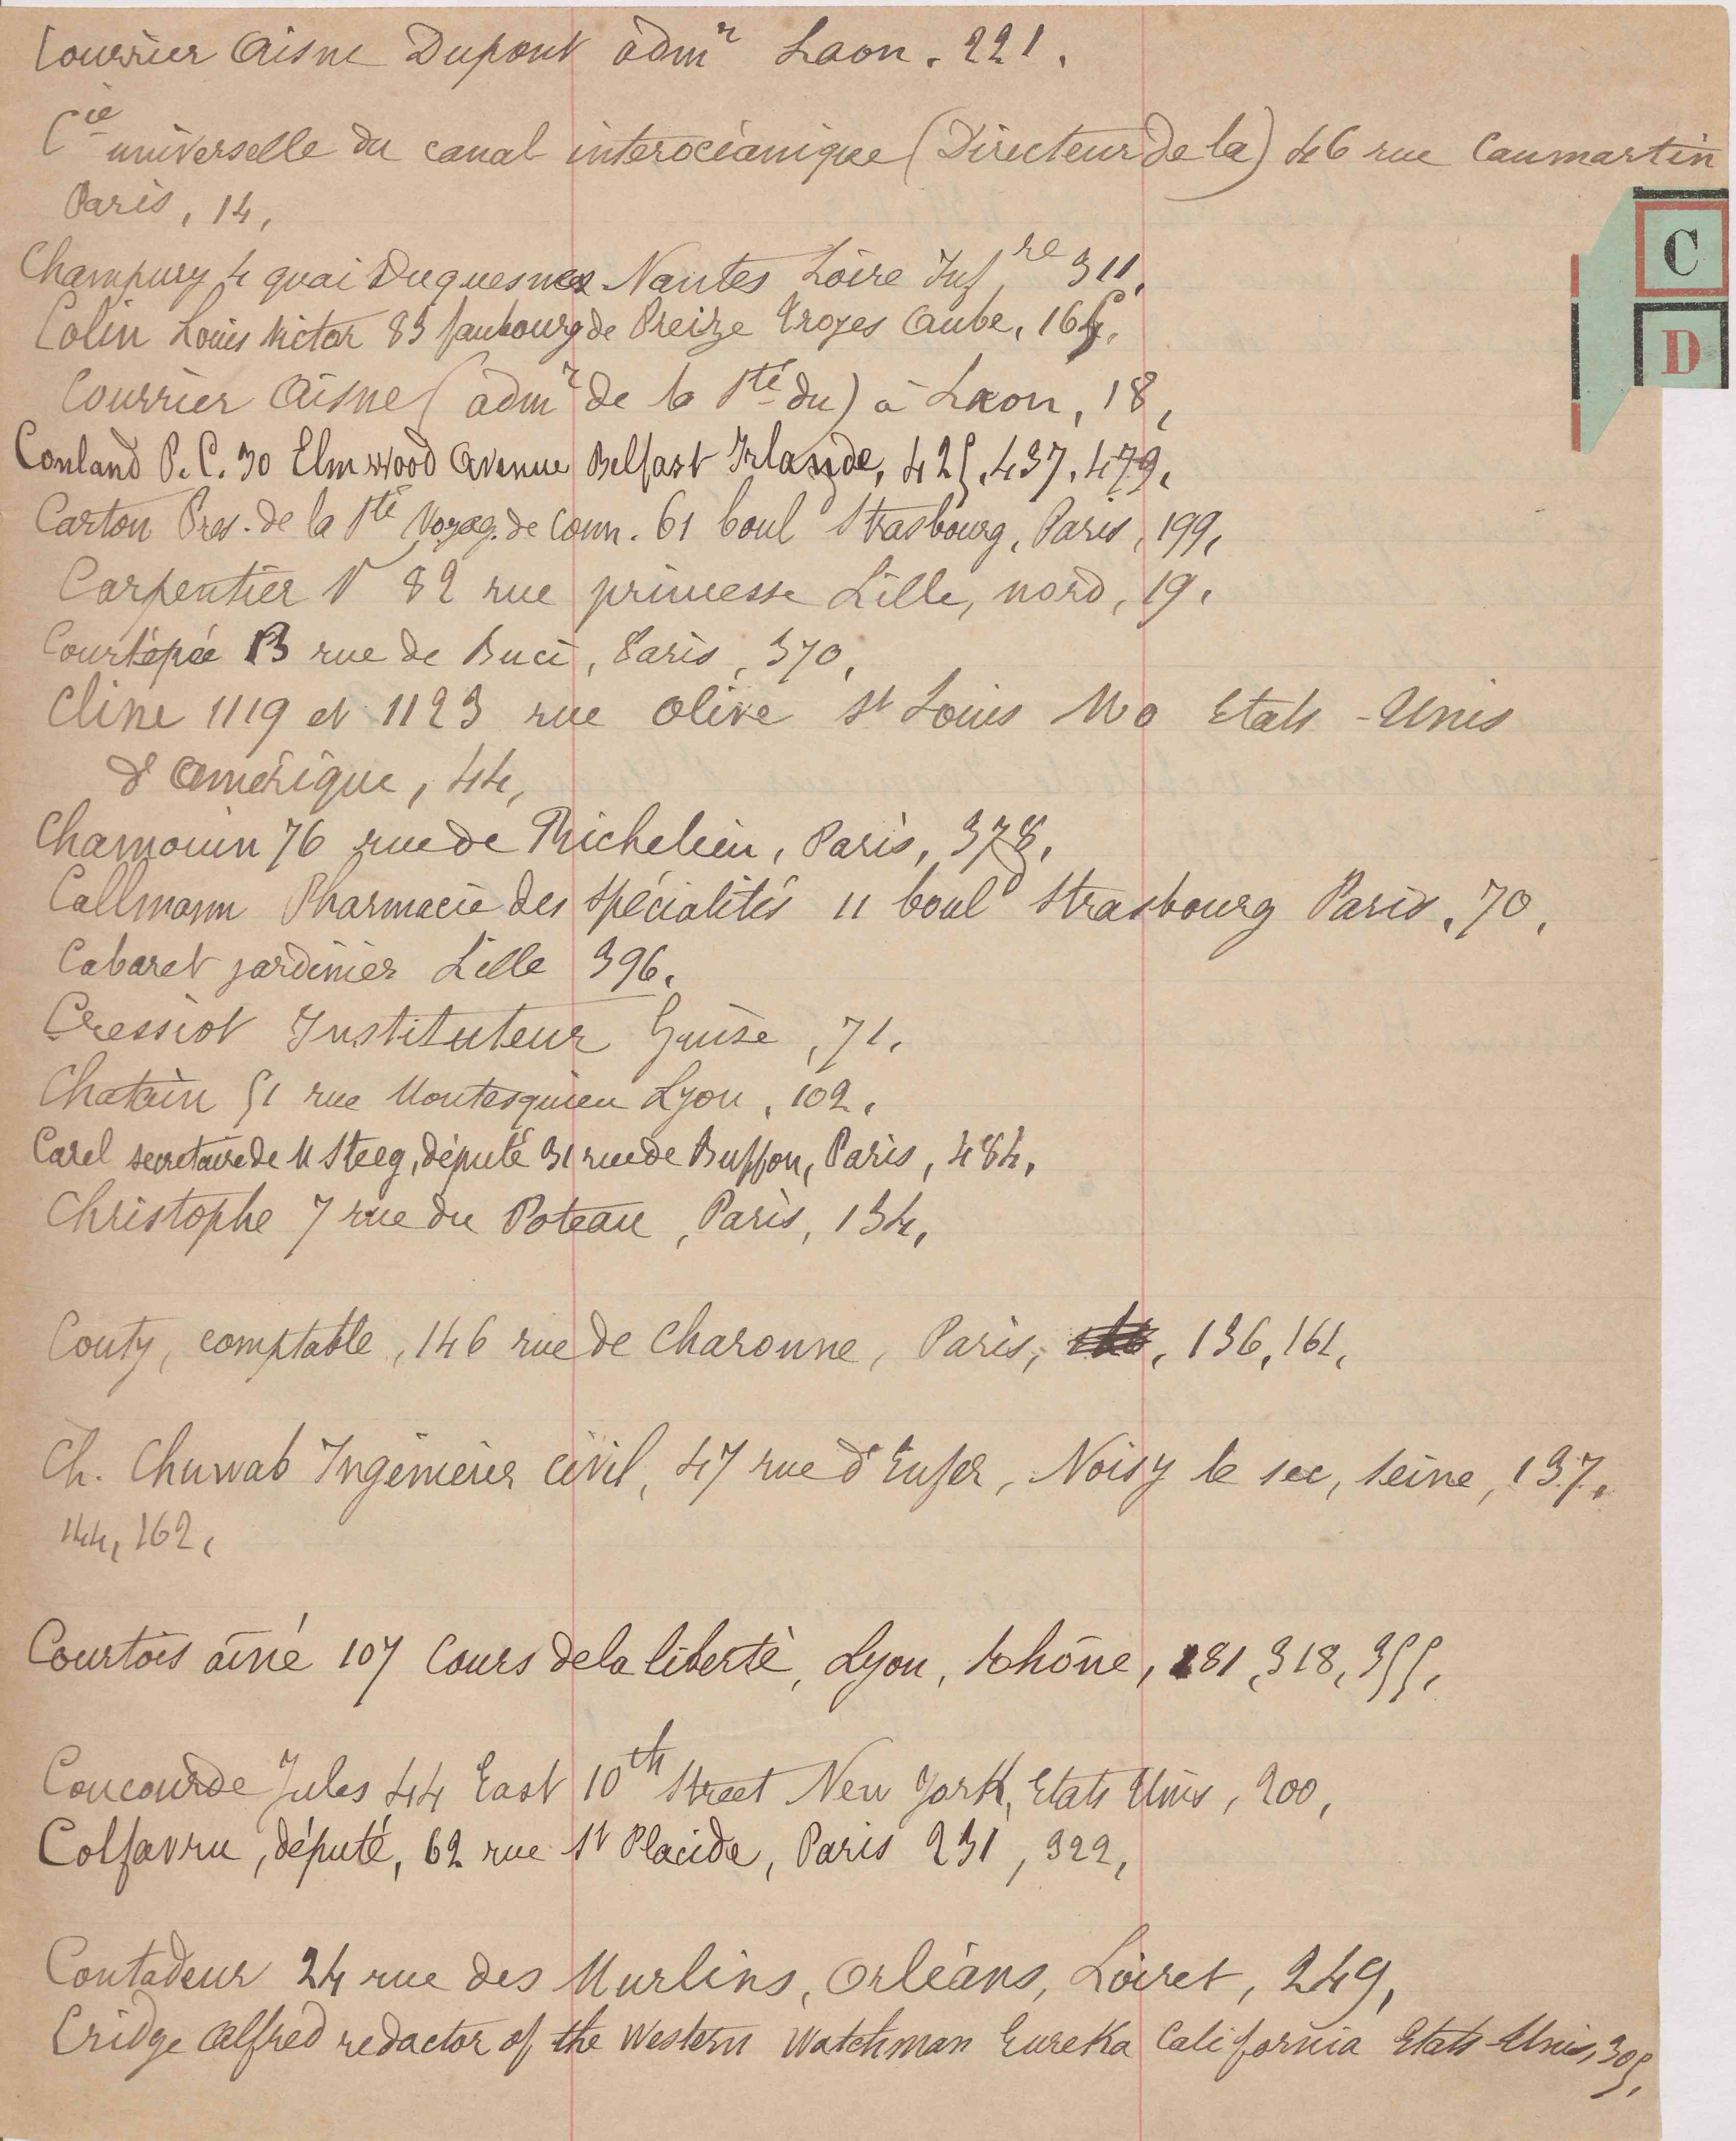 Courrier Aisne Dupont adm^r Laon. 221.
C^ie universelle du canal interocéanique (Directeur de la) 46 rue Caumartin
Paris, 14,
Champury 4 quai Duquesne Nantes Loire Inf^re 311,
Colin Louis Victor 83 faubourg de Preize Troyes Aube, 164,
Courrier Aisne (adm^r de la S^té du) à Laon, 18,
Conland P. C. 30 Elmwood Avenue Belfast Irlande, 425, 437, 479,
Carton Pres. de la S^té Voyag. de Comm. 61 boul^d Strasbourg, Paris, 199,
Carpentier V 82 rue princesse Lille, nord, 19,
Courtépée 13 rue de Buci, Paris, 370,
Cline 1119 et 1123 rue Olive St Louis Mo Etats-Unis
d'Amérique, 44,
Chamouin 76 rue de Richelieu, Paris, 378,
Callmann Pharmacie des Spécialités 11 boul^d Strasbourg Paris, 70,
Cabaret jardinier Lille 396,
Cressiot Instituteur Guise, 71,
Chatain 51 rue Montesquieu Lyon, 102,
Carel secretaire de M Steeg, député 31 rue de Buffon, Paris, 484,
Christophe 7 rue du Poteau, Paris, 134,
Couty, comptable, 146 rue de Charonne, Paris, 136, 161,
Ch. Chuwab Ingénieur civil, 47 rue d'Enfer, Noisy le sec, Seine, 137,
144, 162,
Courtois ainé 107 Cours de la liberté, Lyon, Rhône, 281, 318, 355,
Concourde Jules 44 East 10^th Street New York, Etats Unis, 200,
Colfavru, député, 62 rue St Placide, Paris 231, 322,
Contadeur 24 rue des Murlins, Orléans, Loiret, 249,
Cridge Alfred redactor of the Western Watchman Eureka California Etats-Unis, 305,
C
D